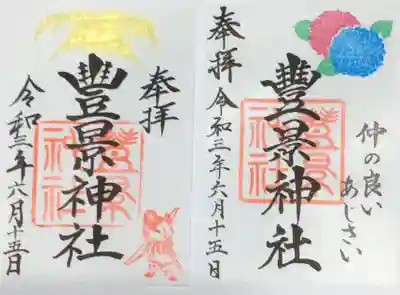 奉拝
豊景神社
令和三年六月十五日
豊景神社
奉拝
豊景神社
令和三年六月十五日
豊景神社
仲の良い
あじさい